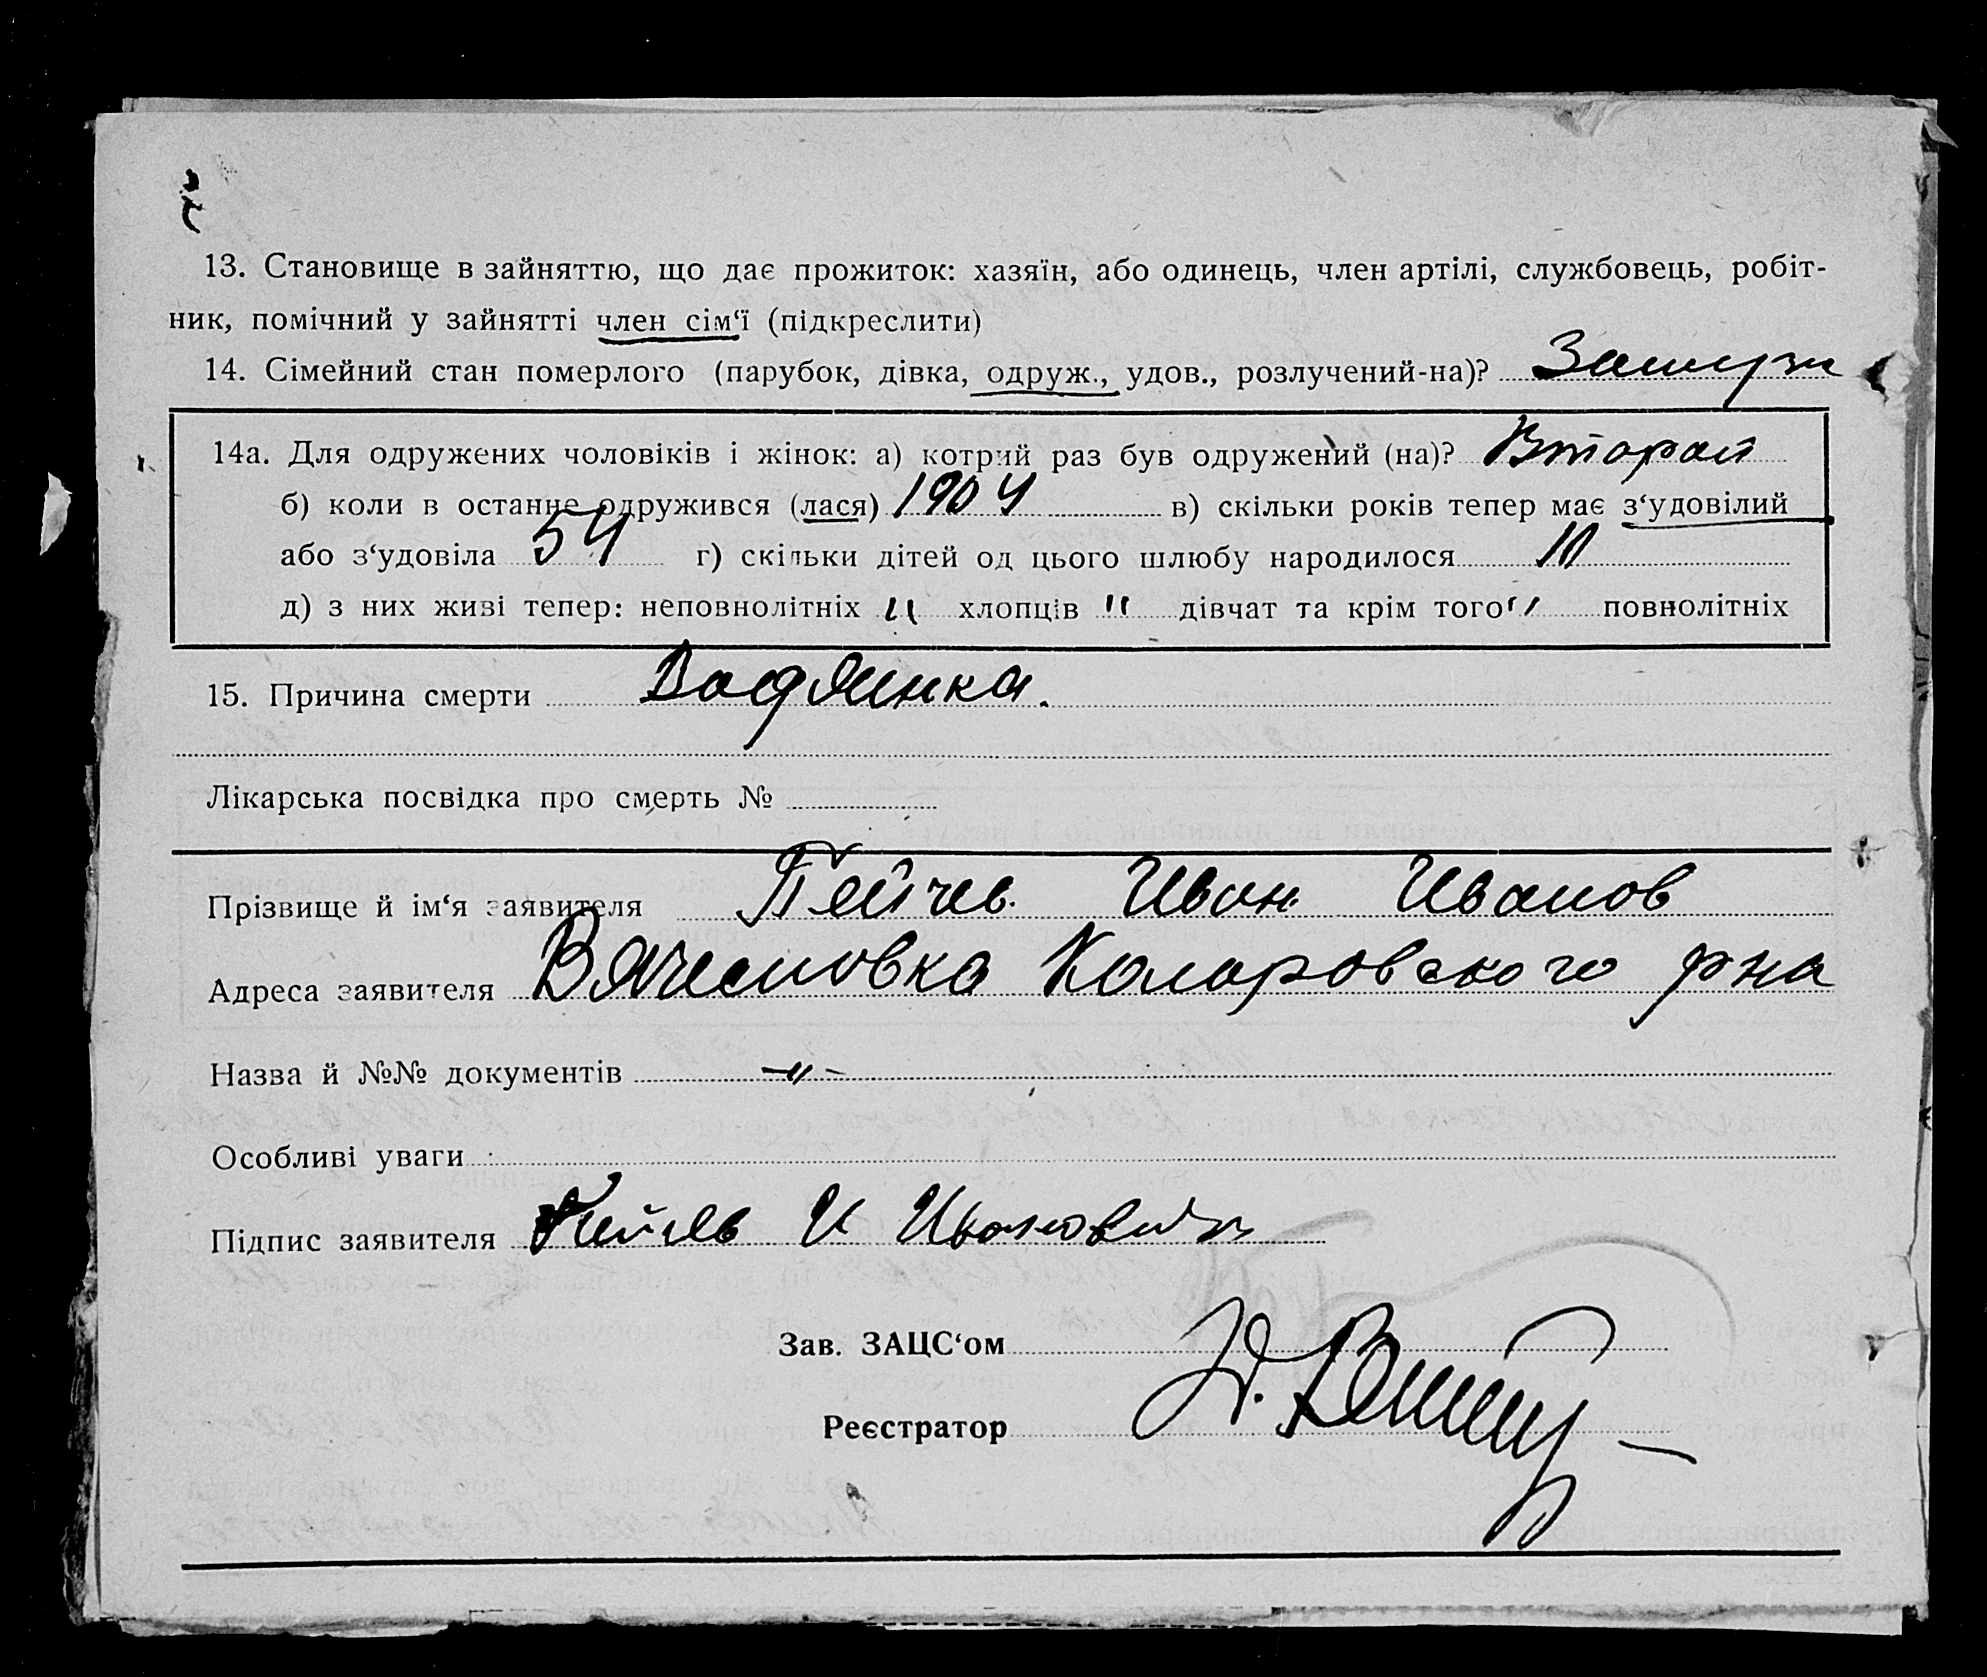 13. Становище в зайняттю, що дає прожиток: хазяїн, або одинець, член артілі, службовець, робіт-
ник, помічний у зайнятті член сім‘ї (підкреслити)
14. Сімейний стан померлого (парубок, дівка, одруж., удов., розлучений-на)? Замуж
14а. Для одружених чоловіків і жінок: а) котрий раз був одружений (на)? Второй
б) коли в останнє одружився (лася) 1904 в) скільки років тепер має з‘удовілий
або з‘удовіла 54 г) скільки дітей од цього шлюбу народилося "
д) з них живі тепер: неповнолітніх " хлопців " дівчат та крім того " повнолітніх
15. Причина смерти Водянка.
Лікарська посвідка про смерть №
Прізвище й ім‘я заявителя Пейчев Иван Иванов
Адреса заявителя Вячесловка Коларовского рна
Назва й №№ документів -"-
Особливі уваги
Підпис заявителя И Иванович
Зав. ЗАЦС‘ом
Реєстратор